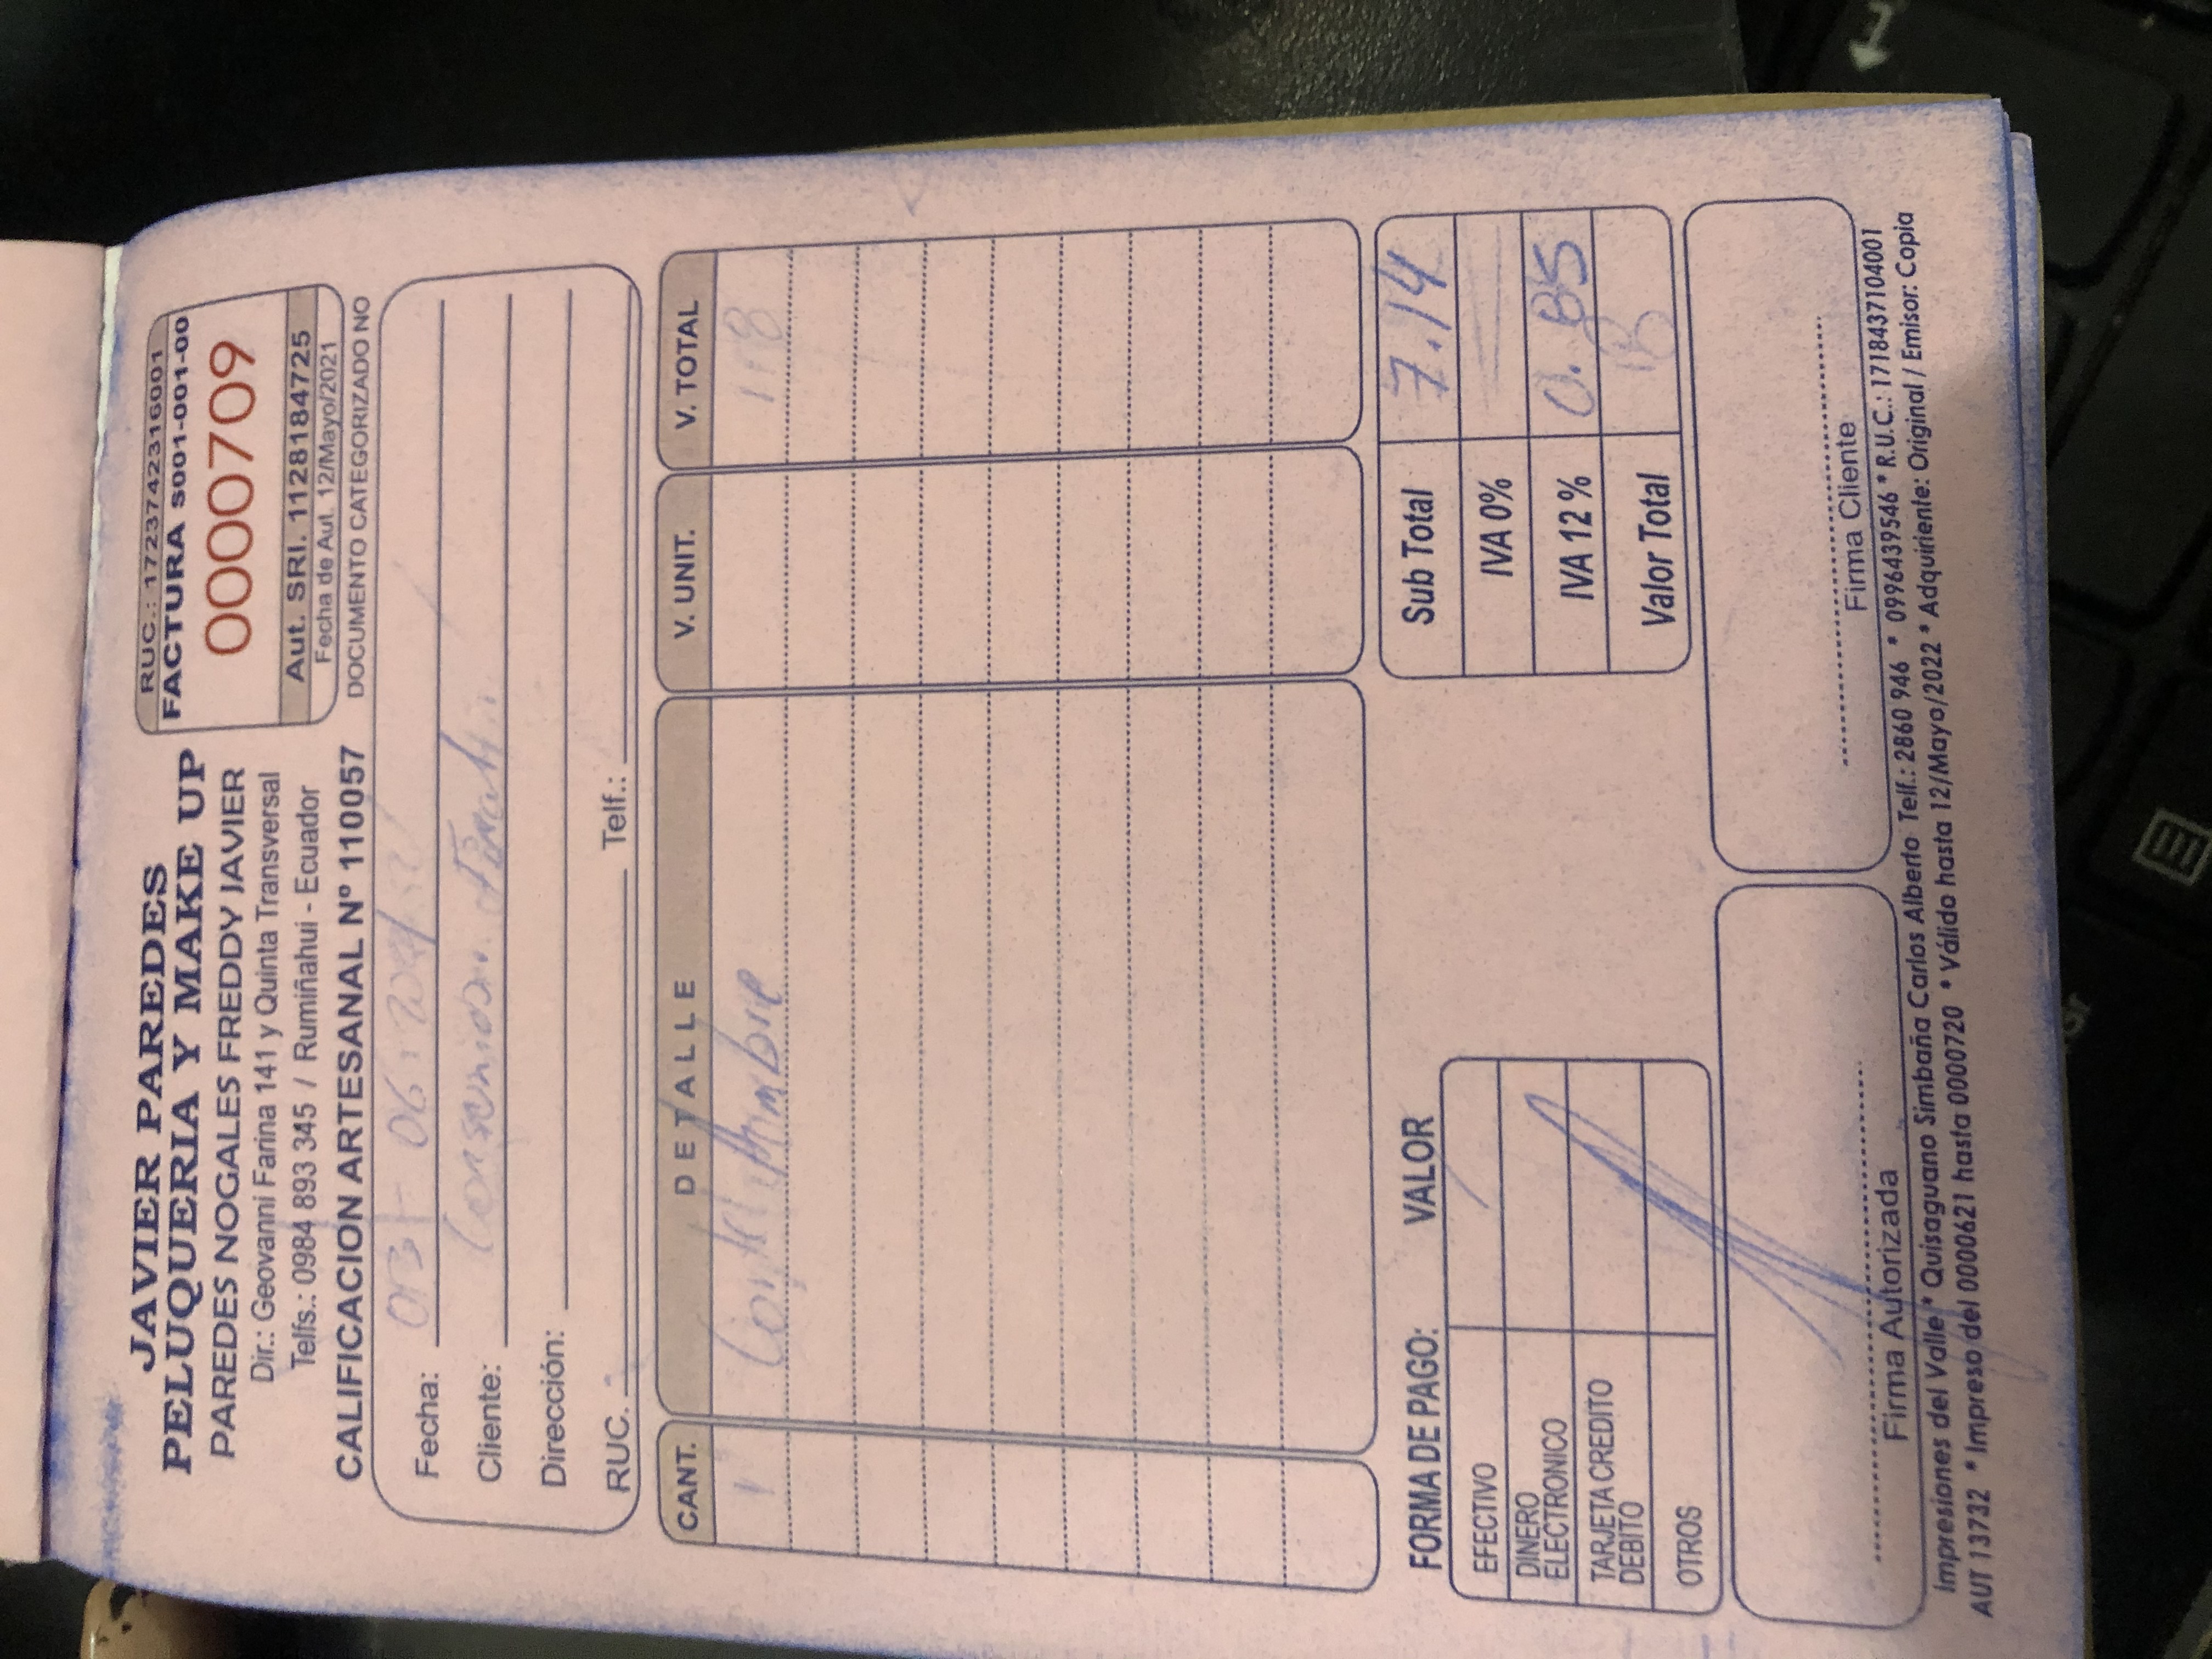 JAVIER PAREDES
PELUQUERIA Y MAKE UP
PAREDES NOGALES FREDDY JAVIER
Dir.: Geovanni Farina 141 y Quinta Transversal
Telfs.: 0984 893 345 / Rumiñahui - Ecuador
CALIFICACION ARTESANAL Nº 110057
RUC.: 1723742316001
FACTURA S001-001-00
0000709
Aut. SRI. 1128184725
Fecha de Aut. 12/Mayo/2021
DOCUMENTO CATEGORIZADO NO
Fecha: 03 - 06
Cliente: Consumidor Final
Dirección:
RUC. Telf.:
CANT. DETALLE V. UNIT. V. TOTAL
1
FORMA DE PAGO: VALOR
EFECTIVO
DINERO
ELECTRONICO
TARJETA CREDITO
DEBITO
OTROS
Sub Total 7.14
IVA 0%
IVA 12 % 0.85
Valor Total
Firma Autorizada
Firma Cliente
Impresiones del Valle * Quisaguano Simbaña Carlos Alberto Telf.: 2860 946 * 0996439546 * R.U.C.: 1718437104001
AUT 13732 * Impreso del 0000621 hasta 0000720 * Válido hasta 12/Mayo/2022 * Adquiriente: Original / Emisor: Copia